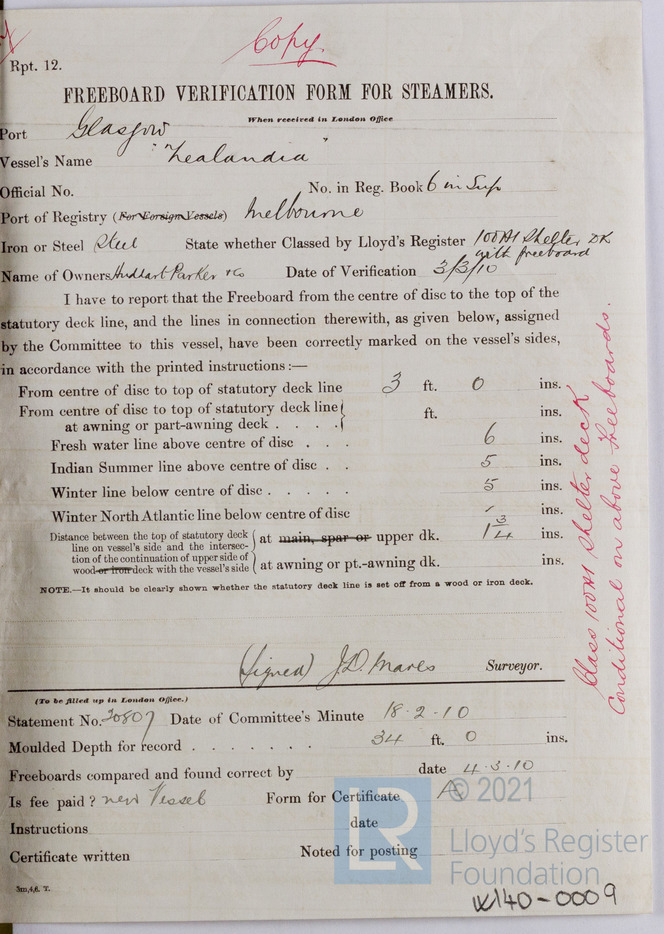 Copy
Rpt. 12.
FREEBOARD VERIFICATION FORM FOR STEAMERS.
When received in London Office
Port Glasgow
Vessel's Name "Zealandia"
Official No. No. in Reg. Book 6 in Sup
Port of Registry (For Foreign Vessels) Melbourne
Iron or Steel Steel State whether Classed by Lloyd's Register 100A1 Shelter DK
with freeboard
Name of Owners Huddart Parker & Co Date of Verification 3/3/10
I have to report that the Freeboard from the centre of disc to the top of the
statutory deck line, and the lines in connection therewith, as given below, assigned
by the Committee to this vessel, have been correctly marked on the vessel's sides,
in accordance with the printed instructions:—
From centre of disc to top of statutory deck line 3 ft. 0 ins.
From centre of disc to top of statutory deck line
at awning or part-awning deck . . . . ft. ins.
Fresh water line above centre of disc . . . 6 ins.
Indian Summer line above centre of disc . . 5 ins.
Winter line below centre of disc . . . . . 5 ins.
Winter North Atlantic line below centre of disc ins.
Distance between the top of statutory deck
line on vessel's side and the intersec-
tion of the continuation of upper side of
wood or iron deck with the vessel's side
at main, spar or upper dk. 1 3/4 ins.
at awning or pt.-awning dk. ins.
NOTE.—It should be clearly shown whether the statutory deck line is set off from a wood or iron deck.
Class 100A1 Shelter deck
Conditional on above freeboards.
(Signed) J.D. Mares Surveyor.
(To be filled up in London Office.)
Statement No. 20807 Date of Committee's Minute 18.2.10
Moulded Depth for record . . . . . . . 34 ft. 0 ins.
Freeboards compared and found correct by date 4.3.10
Is fee paid? new Vessel Form for Certificate
Instructions date
Certificate written Noted for posting
3m,4,6. T.
LR
© 2021
Lloyd's Register
Foundation
W140-0009